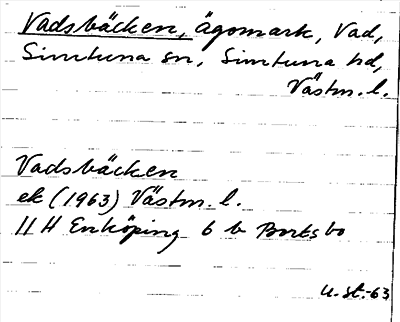 Vadsbäcken, Ägomark, Vad,
Simtuna sn, Simtuna hd,
Västm. l.
Vadsbäcken
ek (1963) Västm. l.
11 H Enköping 6 b Bortsbo
U. st. -63